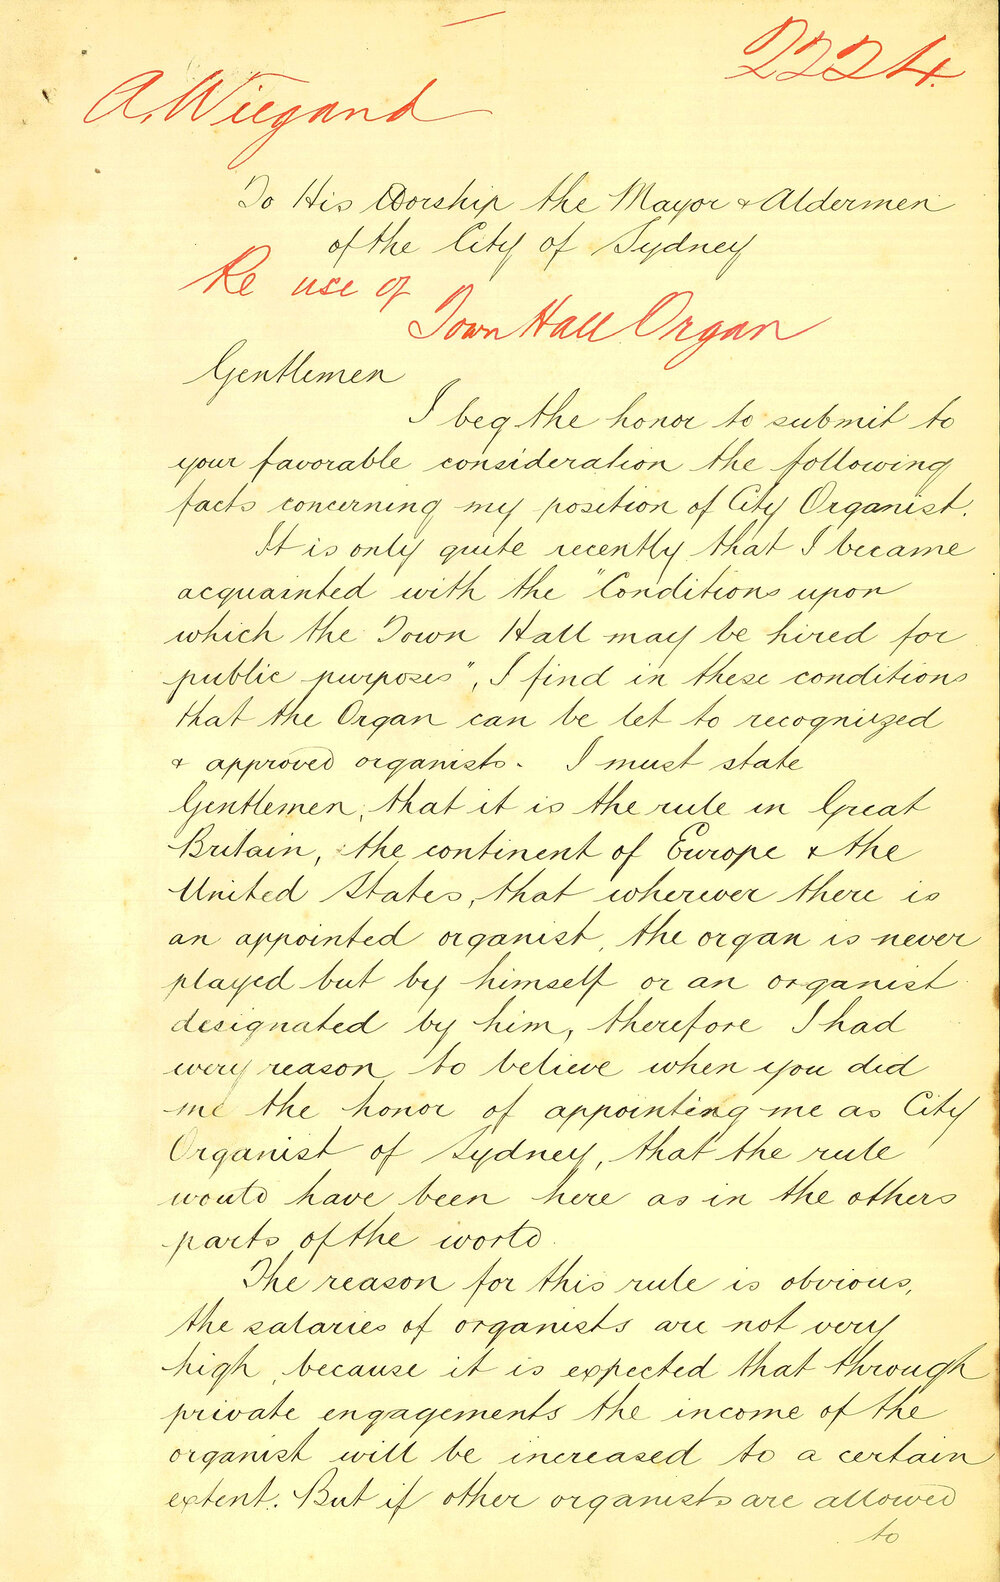 2224.
A. Wiegand
To His Worship the Mayor & Aldermen
of the City of Sydney
Re use of
Town Hall Organ
Gentlemen
I beg the honor to submit to
your favorable consideration the following
facts concerning my position of City Organist.
It is only quite recently that I became
acquainted with the "Conditions upon
which the Town Hall may be hired for
public purposes", I find in these conditions
that the Organ can be let to recognized
& approved organists. I must state
Gentlemen, that it is the rule in Great
Britain, the continent of Europe & the
United States, that wherever there is
an appointed organist, the organ is never
played but by himself or an organist
designated by him, therefore I had
every reason to believe when you did
me the honor of appointing me as City
Organist of Sydney, that the rule
would have been here as in the others
parts of the world.
The reason for this rule is obvious,
the salaries of organists are not very
high, because it is expected that through
private engagements the income of the
organist will be increased to a certain
extent. But if other organists are allowed
to